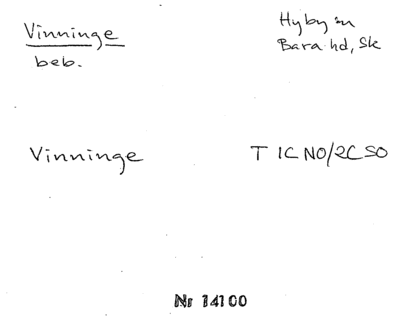 Vinninge
beb.
Hyby sn
Bara hd, Sk
Vinninge
T 1C NO/2C SO
Nr 14100